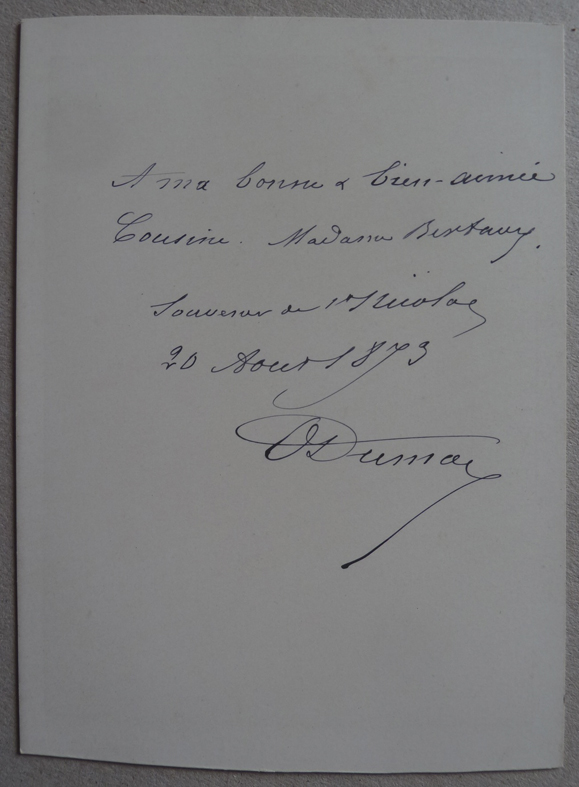 A ma bonne & bien-aimée
Cousine. Madame Bertaux.
Souvenir de St Nicolas
20 Aout 1873
Dumas